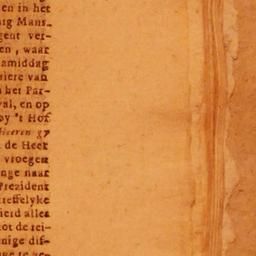 en in het
nig Mans-
gent ver-
en, waar
amiddag
siere van
n het Par-
val, en op
by 't Hof
Heeren gy
de Heer
vroegen
nge naar
Prezident
treffelyke
ierd alles
ot de rei-
nige dis-